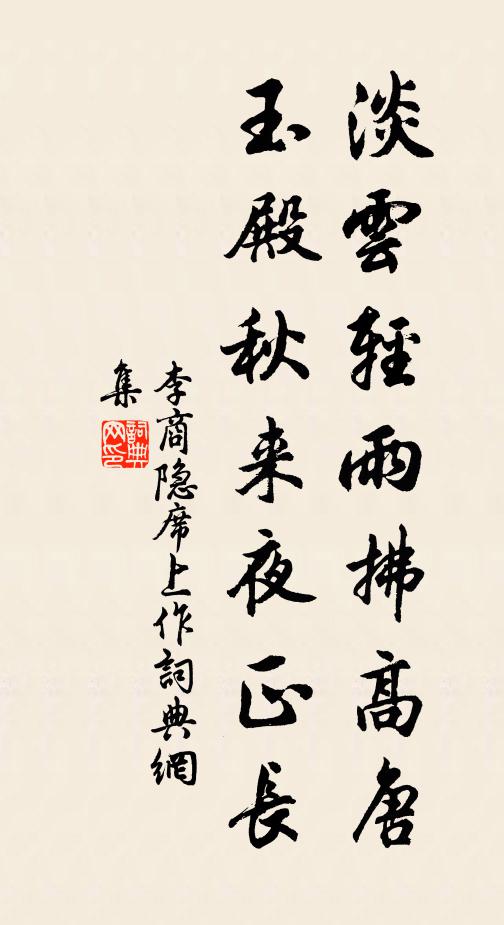 淡雲輕雨拂高唐
玉殿秋来夜正長
李商隐席上作詞典網
集
詞典
网印